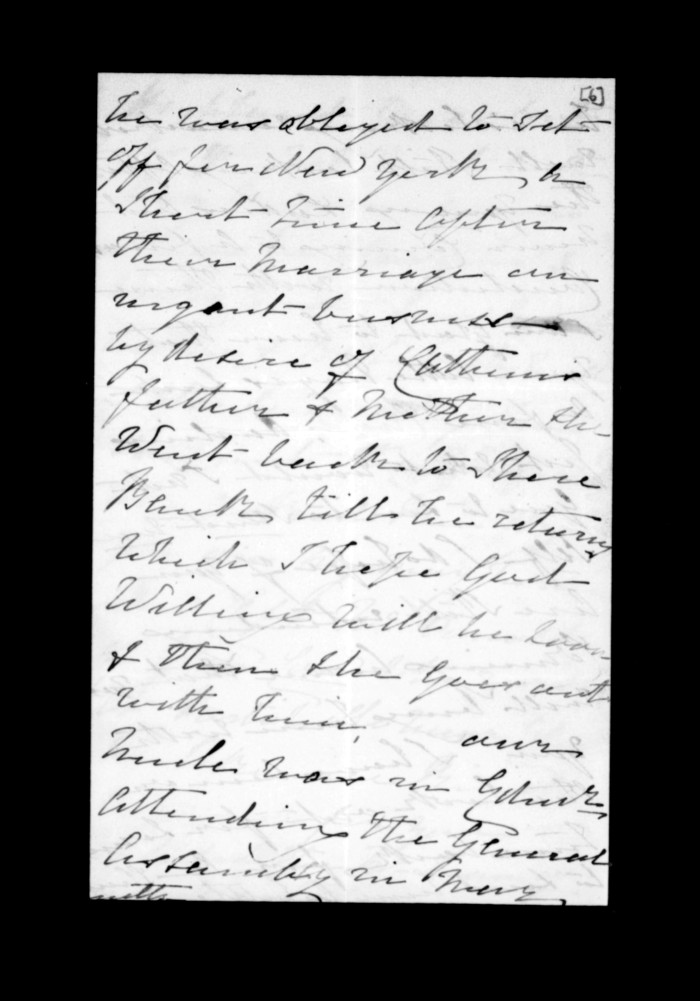 [6]
he was obleged to Set
off for New York, a
Short time after
their Marriage on
urgant business
by desire of Catherins
father & Mother she
Went back to there
Bank till he returns
Which I hope God
Willing will be soon
& then she goes out
with him. our
Uncle was in Edinr
attending the General
Assembly in May
with